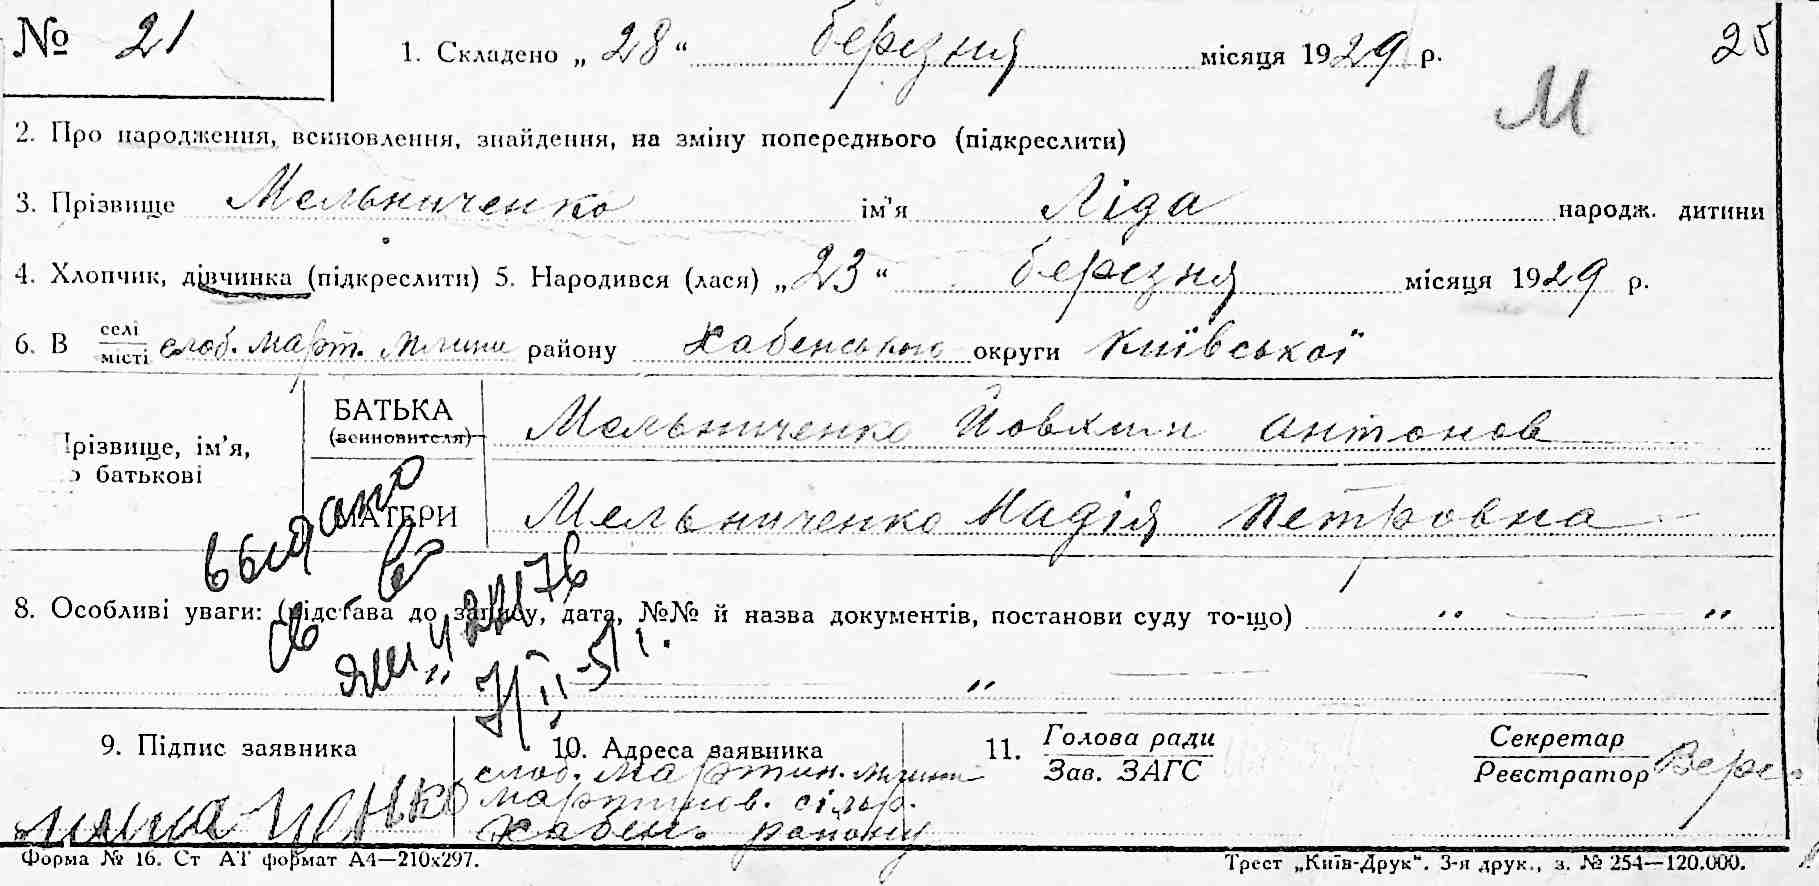 № 21
1. Складено „28“ березня місяця 1929 р. 25
М
2. Про народження, всиновлення, знайдення, на зміну попереднього (підкреслити)
3. Прізвище Мельниченко ім'я Ліда народж. дитини
4. Хлопчик, дівчинка (підкреслити) 5. Народився (лася) „23“ березня місяця 1929 р.
6. В селі місті слоб. март. млини району Хабенського округи Київської
Прізвище, ім'я, по батькові
БАТЬКА (всиновителя) Мельниченко Йовхим Антонов
МАТЕРИ Мельниченко Надія Петровна
выдано
св
8. Особливі уваги: (підстава до запису, дата, №№ й назва документів, постанови суду то-що) „ — „
„
9. Підпис заявника
10. Адреса заявника
слоб. Мартин. млини
Мартинов. сільр.
Хабень. району
11. Голова ради
Зав. ЗАГС
Секретар
Реєстратор
Форма № 16. Ст АТ формат А4—210x297.
Трест „Київ-Друк“. 3-я друк., з. № 254—120.000.